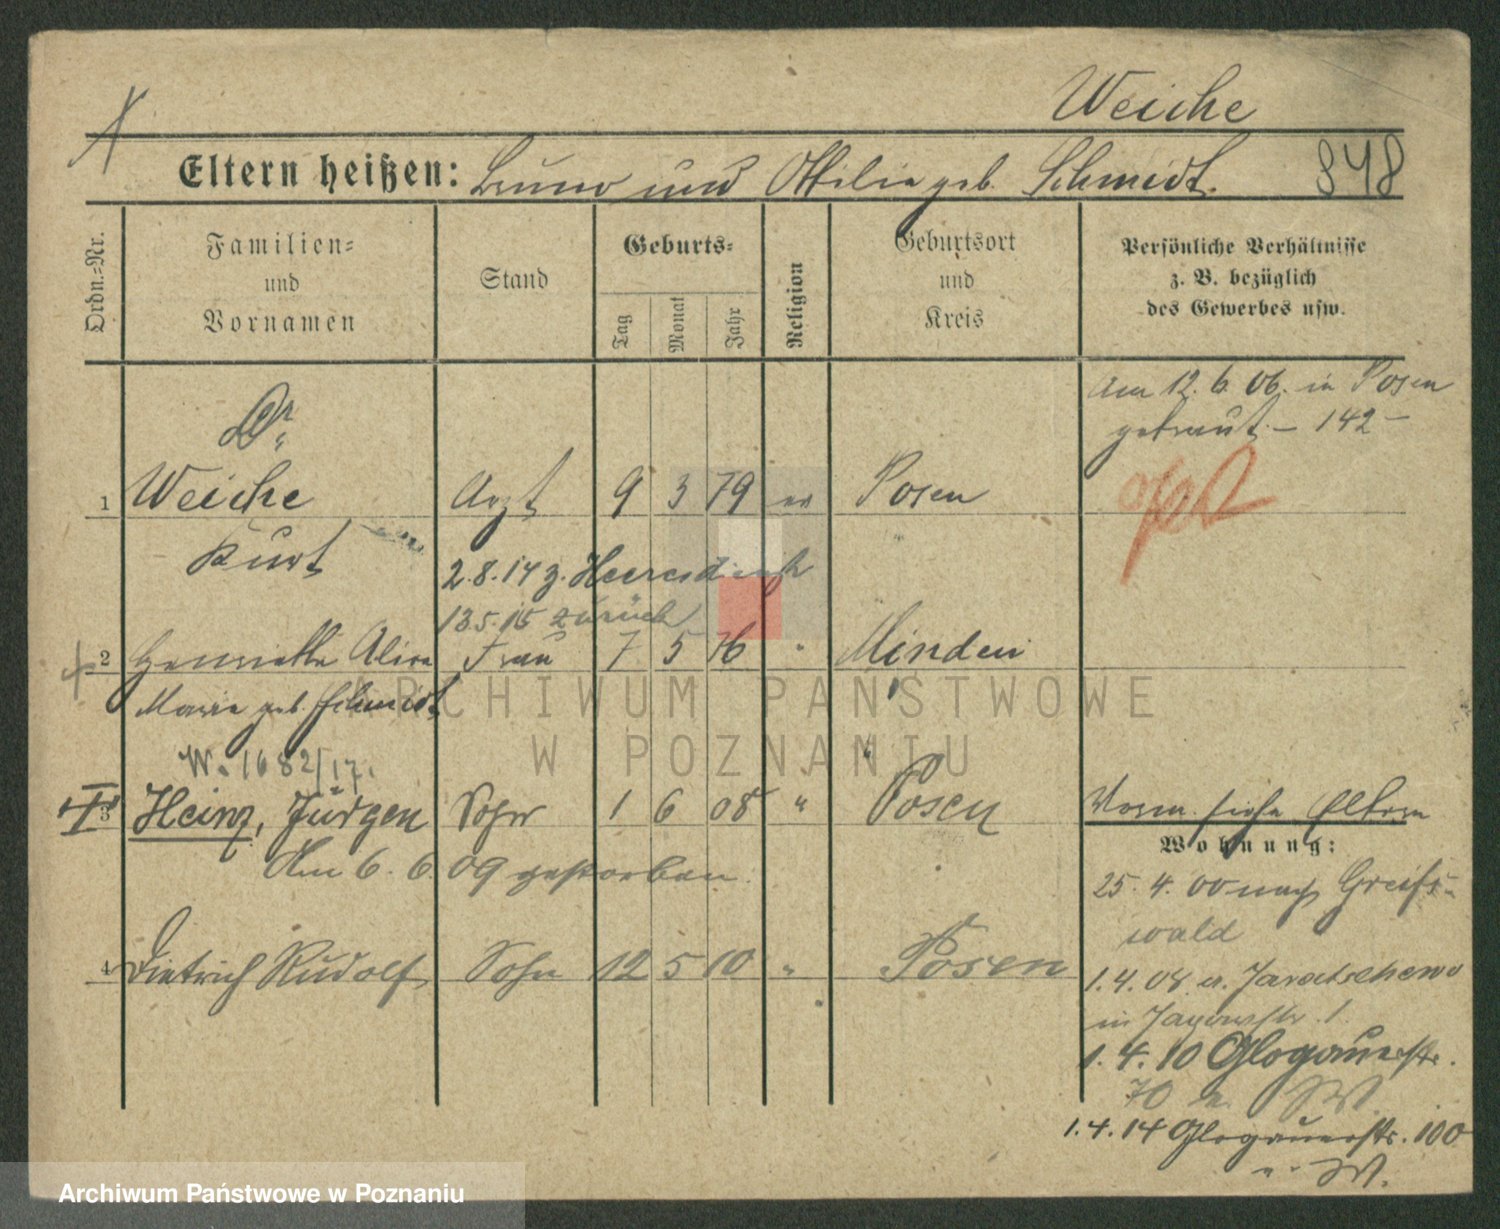 Weiche
Eltern heißen: Bruno und Ottilie geb. Schmidt. 848
Ordn.=Nr.
Familien=
und
Vornamen
Stand
Geburts=
Tag
Monat
Jahr
Religion
Geburtsort
und
Kreis
Persönliche Verhältnisse
z. B. bezüglich
des Gewerbes usw.
Am 12. 6. 06. in Posen
getraut – 142 –
Dr.
1 Weiche Arzt 9 3 79 ev Posen
Kurt
2.8.14 z. Heeresdienst
13.5.15 zurück
2 Henriette Alice Frau 7 5 76 " Minden
Marie geb. Schmidt
W. 1682/17.
3 Heinz, Jürgen Sohn 1 6 08 " Posen
Vorm. siehe Eltern
Am 6. 6. 09 gestorben.
Wohnung:
25. 4. 00 nach Greifs-
wald
4 Dietrich Rudolf Sohn 12 5 10 " Posen
1. 4. 08 a. Jaratschewo
in 1.
1. 4. 10 Glogauerstr.
70 W.
1. 4. 14 Glogauerstr. 100
W.
ARCHIWUM PAŃSTWOWE
W POZNANIU
Archiwum Państwowe w Poznaniu